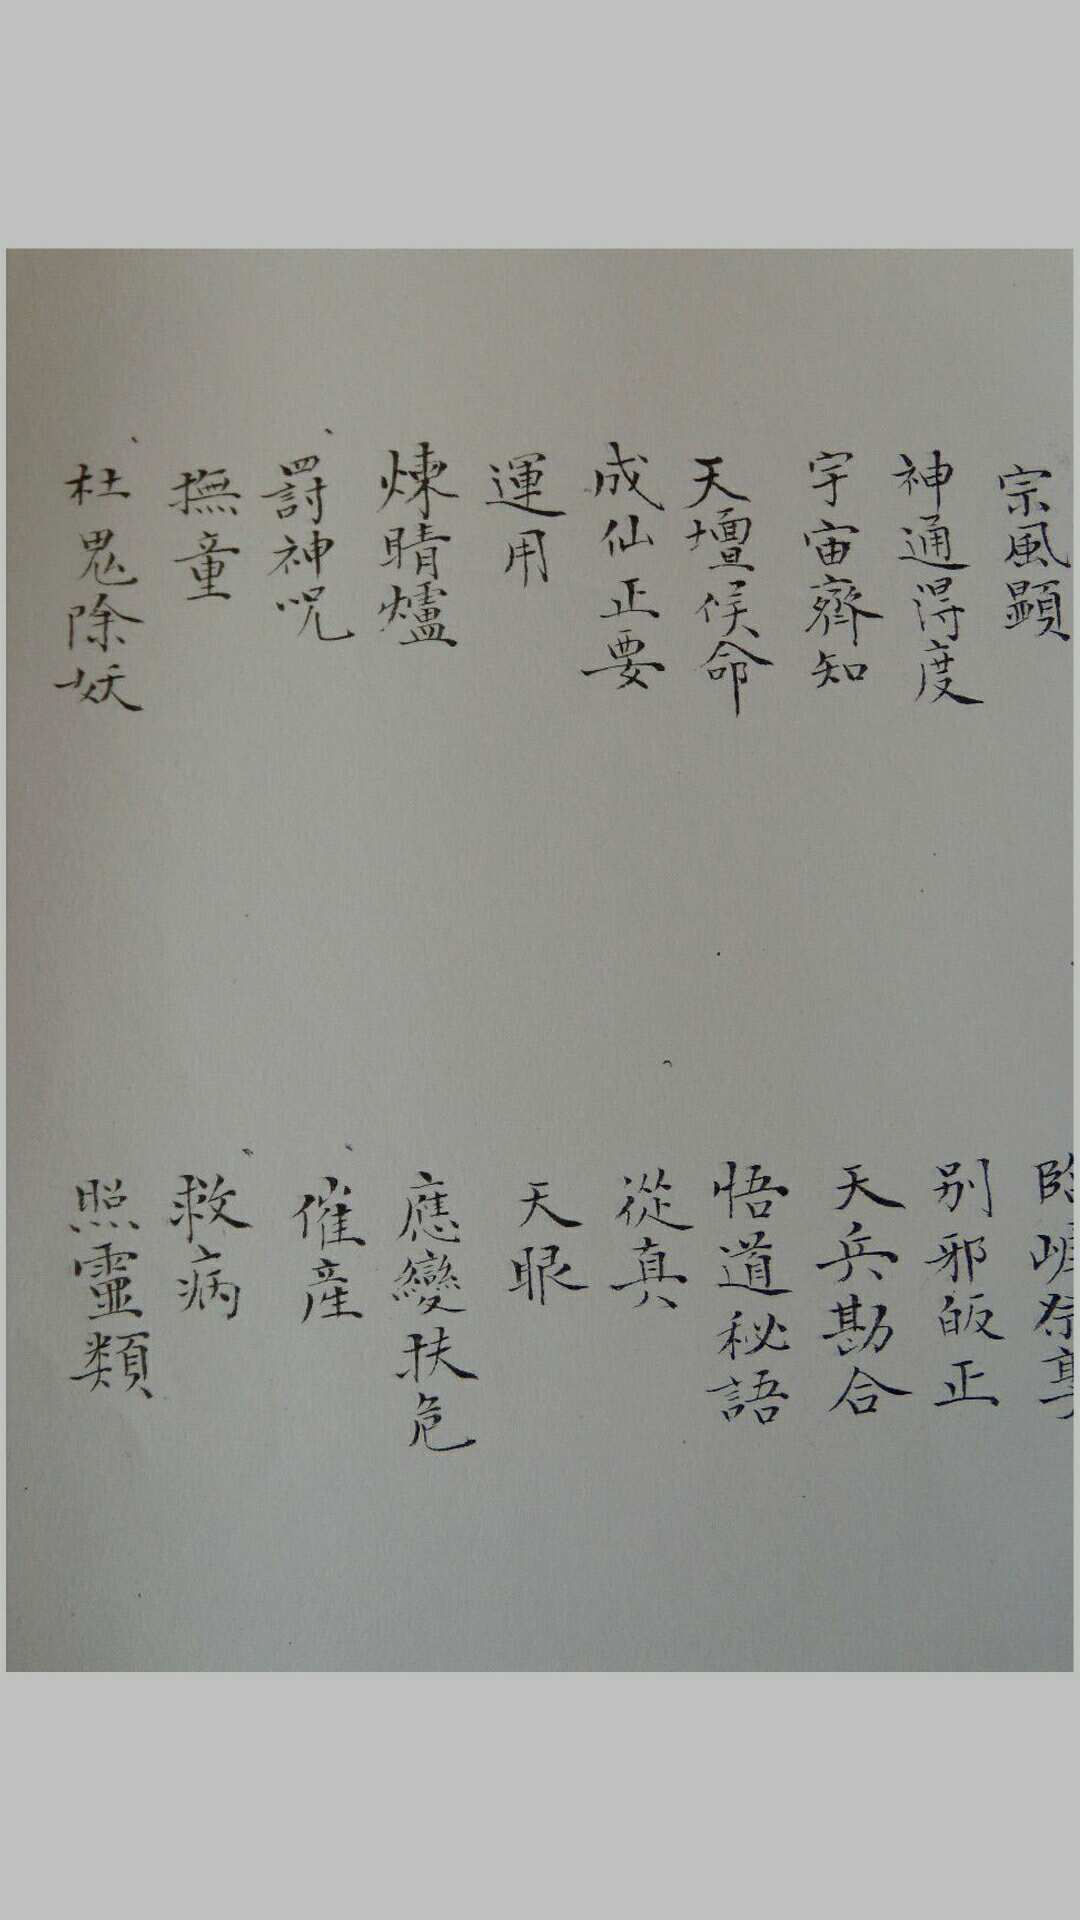 宗風顕
神通得度
宇宙齊知
天壇候命
成仙正要
運用
煉睛爐
罸神呪
撫童
杜鬼除妖
别邪皈正
天兵勘合
悟道秘語
從真
天眼
應變扶危
催産
救病
照靈類